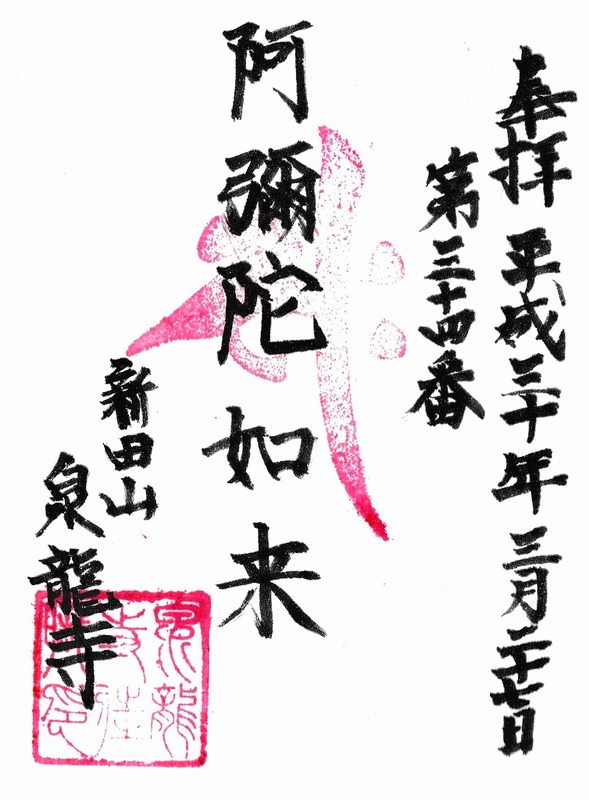 奉拝 平成三十年 三月二十七日
第三十四番
阿彌陀如来
新田山
泉龍寺